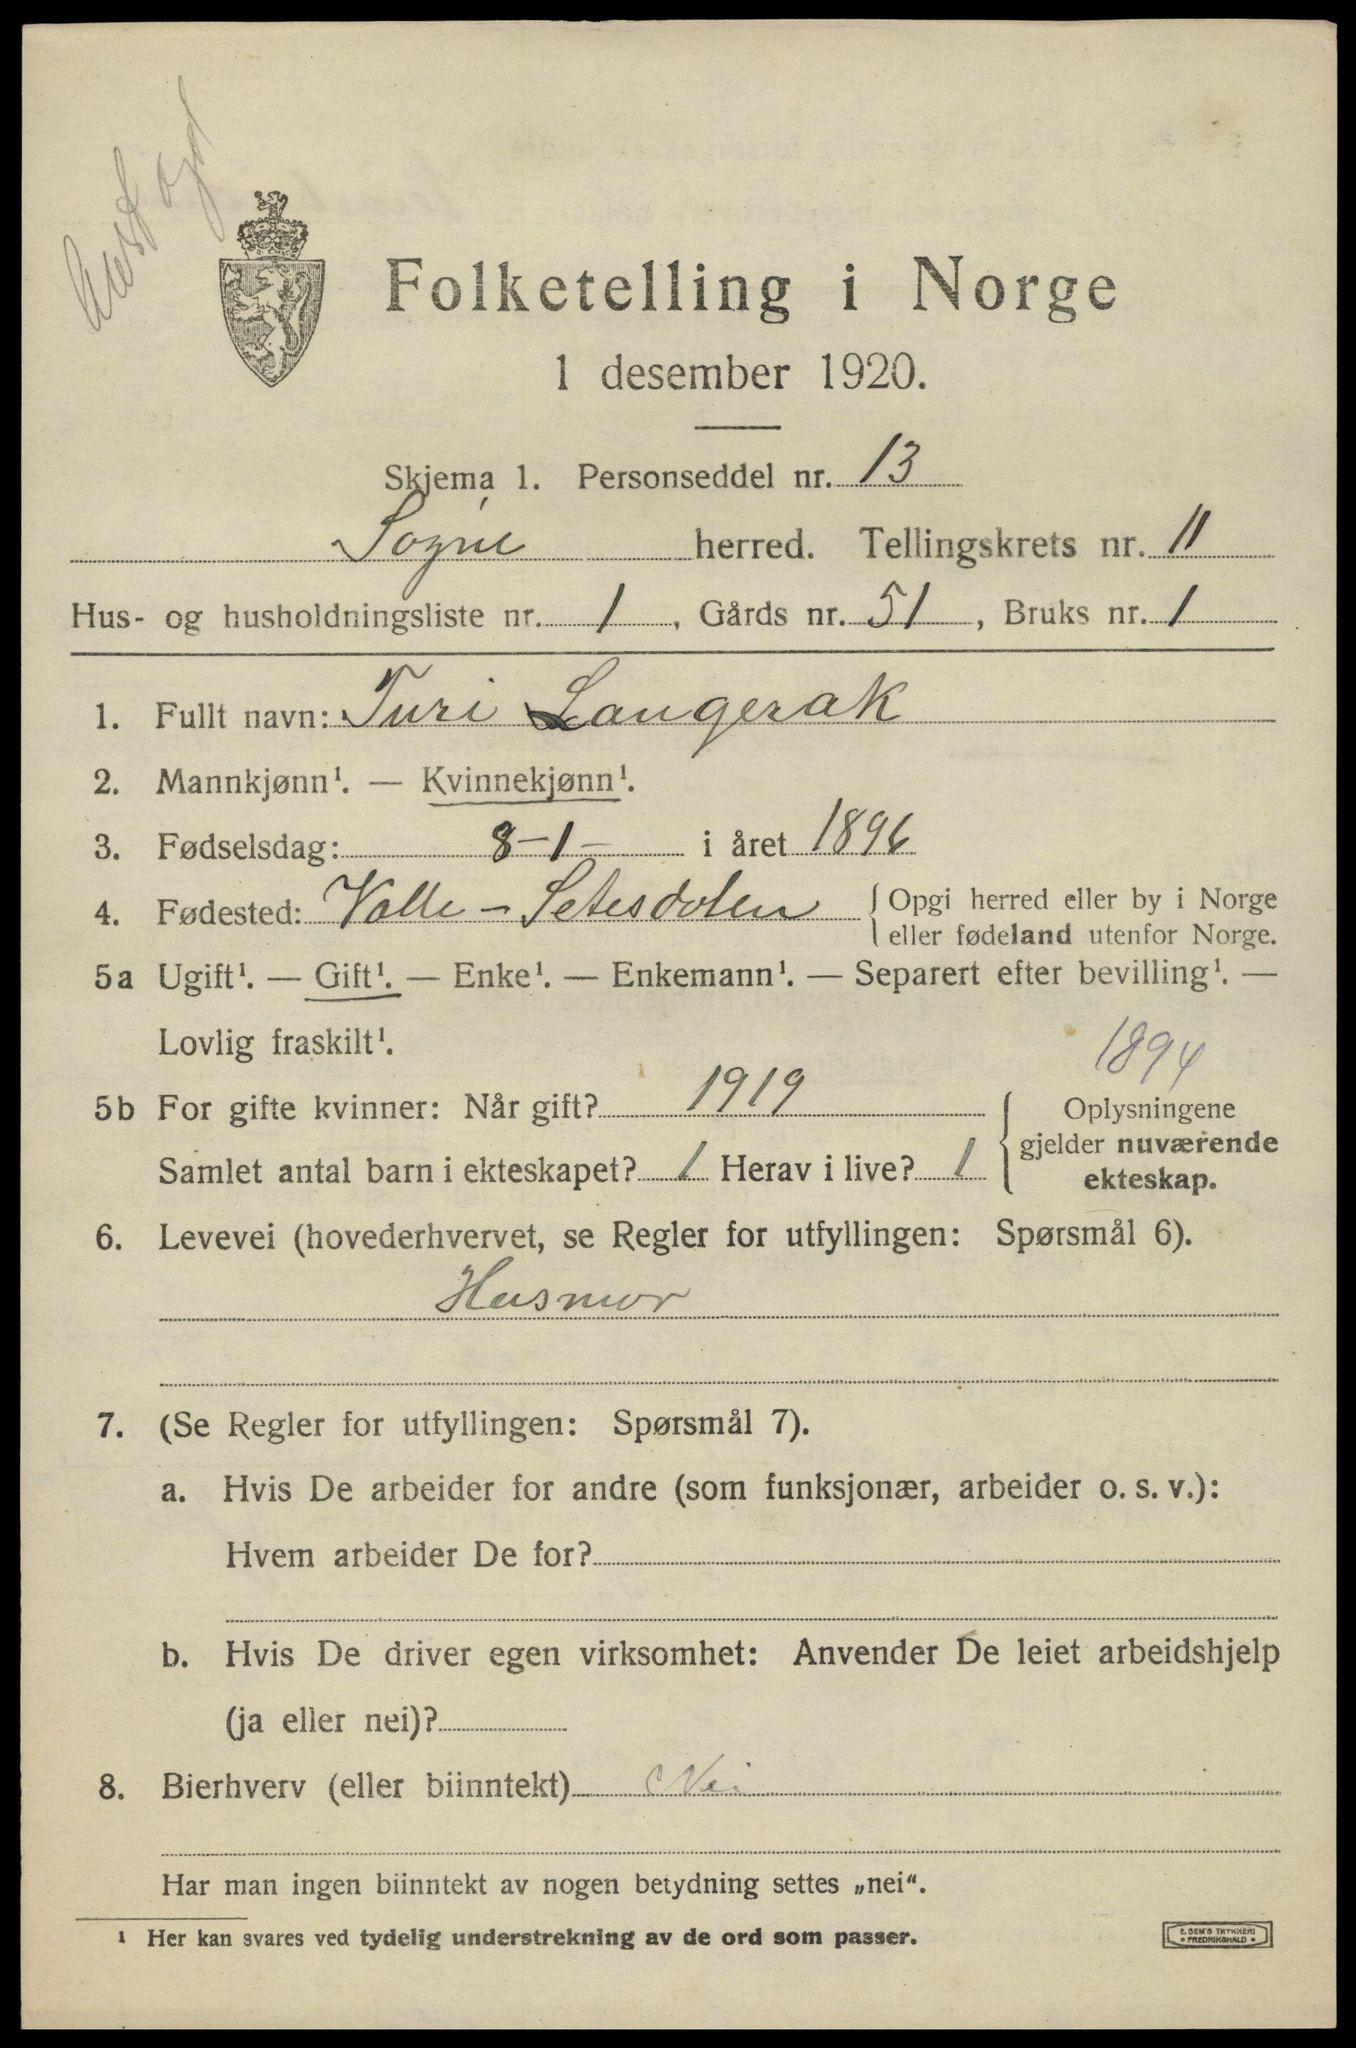 Aust Agd
Folketelling i Norge
1 desember 1920.
Skjema 1. Personseddel nr. 13
Søgne herred. Tellingskrets nr. 11
Hus- og husholdningsliste nr. 1, Gårds nr. 51, Bruks nr. 1
1. Fullt navn: Turi Langerak
2. Mannkjønn¹. — Kvinnekjønn¹.
3. Fødselsdag: 8-1- i året 1896
4. Fødested: Valle - Setesdalen { Opgi herred eller by i Norge
eller fødeland utenfor Norge.
5a Ugift¹. — Gift¹. — Enke¹. — Enkemann¹. — Separert efter bevilling¹. —
Lovlig fraskilt¹.
1894
5b For gifte kvinner: Når gift? 1919
Samlet antal barn i ekteskapet? 1 Herav i live? 1
{ Oplysningene
gjelder nuværende
ekteskap.
6. Levevei (hovederhvervet, se Regler for utfyllingen: Spørsmål 6).
Husmor
7. (Se Regler for utfyllingen: Spørsmål 7).
a. Hvis De arbeider for andre (som funksjonær, arbeider o. s. v.):
Hvem arbeider De for?
b. Hvis De driver egen virksomhet: Anvender De leiet arbeidshjelp
(ja eller nei)?
8. Bierhverv (eller biinntekt) Nei
Har man ingen biinntekt av nogen betydning settes „nei“.
¹ Her kan svares ved tydelig understrekning av de ord som passer.
E. SEM'S TRYKKERI
• FREDRIKSHALD •